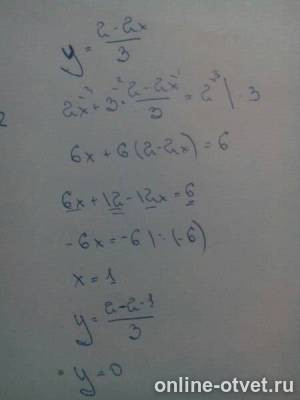 y = (2-2x)/3
2x + 3 · (2-2x)/3 = 2 | · 3
6x + 6(2-2x) = 6
6x + 12 - 12x = 6
-6x = -6 | : (-6)
x = 1
y = (2-2·1)/3
y = 0
online-otvet.ru